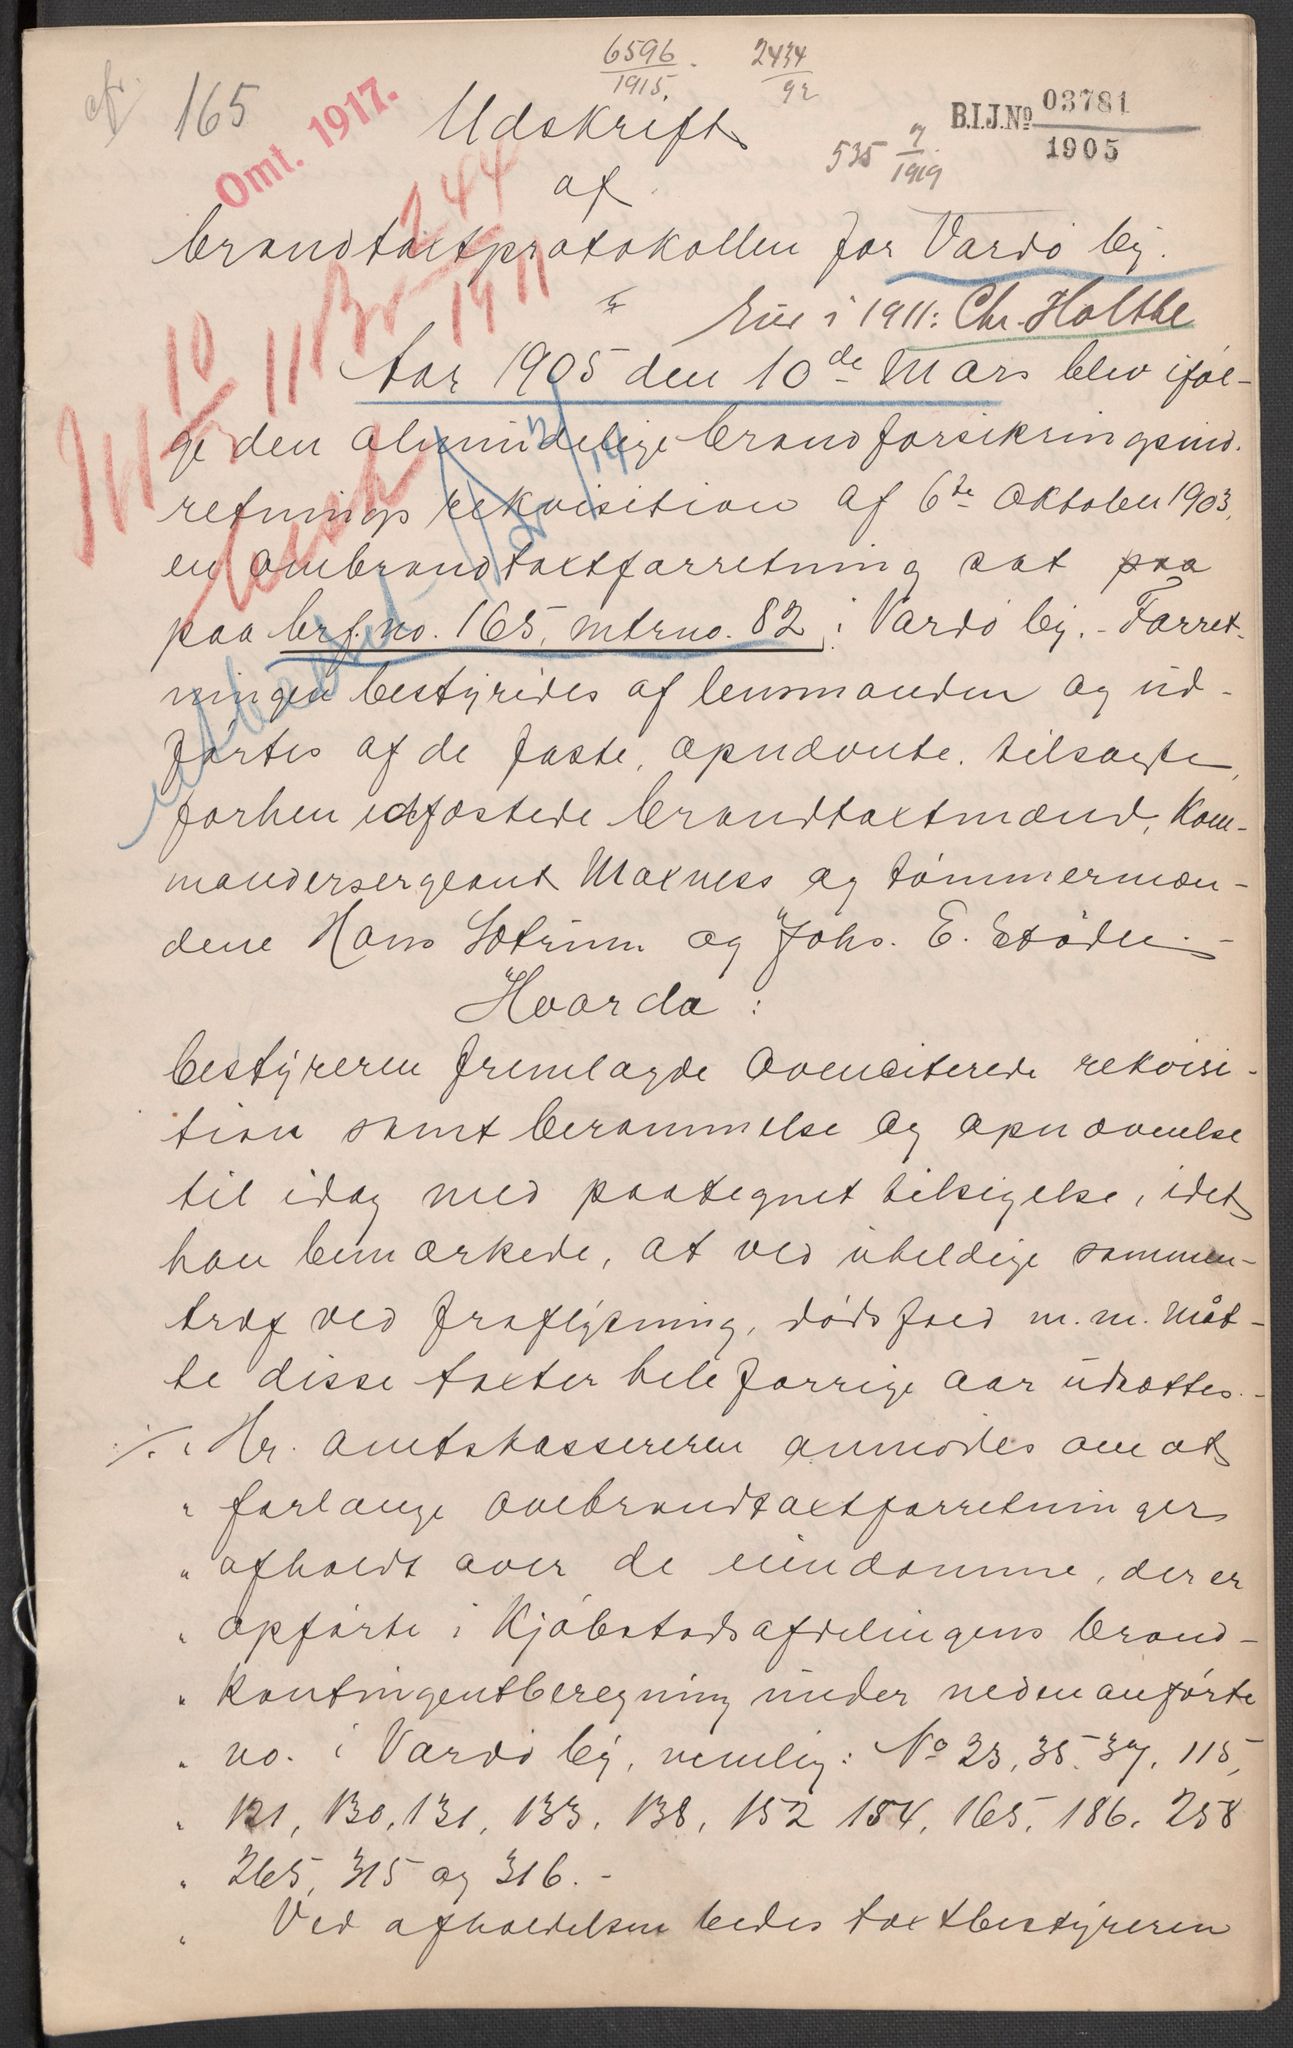 6596
1915.
2434
92
afr.
165
Omt. 1917.
B.I.J.No 03781
1905
535 7
1919
Udskrift
af
brandtaxtprotokollen for Vardö by.
244
1911
Eier i 1911: Chr. Holthe
10
11
Aar 1905 den 10de Mars blev iföl-
ge den almindelige brandforsikringsind-
retnings rekvisition af 6te oktober 1903,
en ombrandtaxtforretning sat paa
paa brf. no. 165, mtrno. 82 i Vardö by. - Forret-
ningen bestyredes af lensmanden og ud-
förtes af de faste, opnævnte, tilsagte,
forhen edfæstede brandtaxtmænd, Kom-
mandersergeant Maxness og tömmermæn-
dene Hans Sotrum og Johs. E. Stöde. -
Hvorda:
bestyreren fremlagde ovenciterede rekvisi-
tion samt berammelse og opnævnelse
til idag med paategnet tilsigelse, idet
han bemærkede, at ved uheldige sammen-
træf ved fraflytning, dödsfald m.m. måt-
te disse taxter hele forrige aar udsættes. -
./. " Hr. amtskassereren anmodes om at
" forlange ombrandtaxtforretninger
" afholdt over de eiendomme, der er
" opförte i Kjöbstadsafdelingens brand-
" kontingentberegning under nedenanförte
" no. i Vardö by, nemlig: No 23, 35, 37, 115,
" 121, 130, 131, 133, 138, 152 154, 165, 186, 258
" 265, 315 og 316. -
" Ved afholdelsen bedes taxtbestyreren